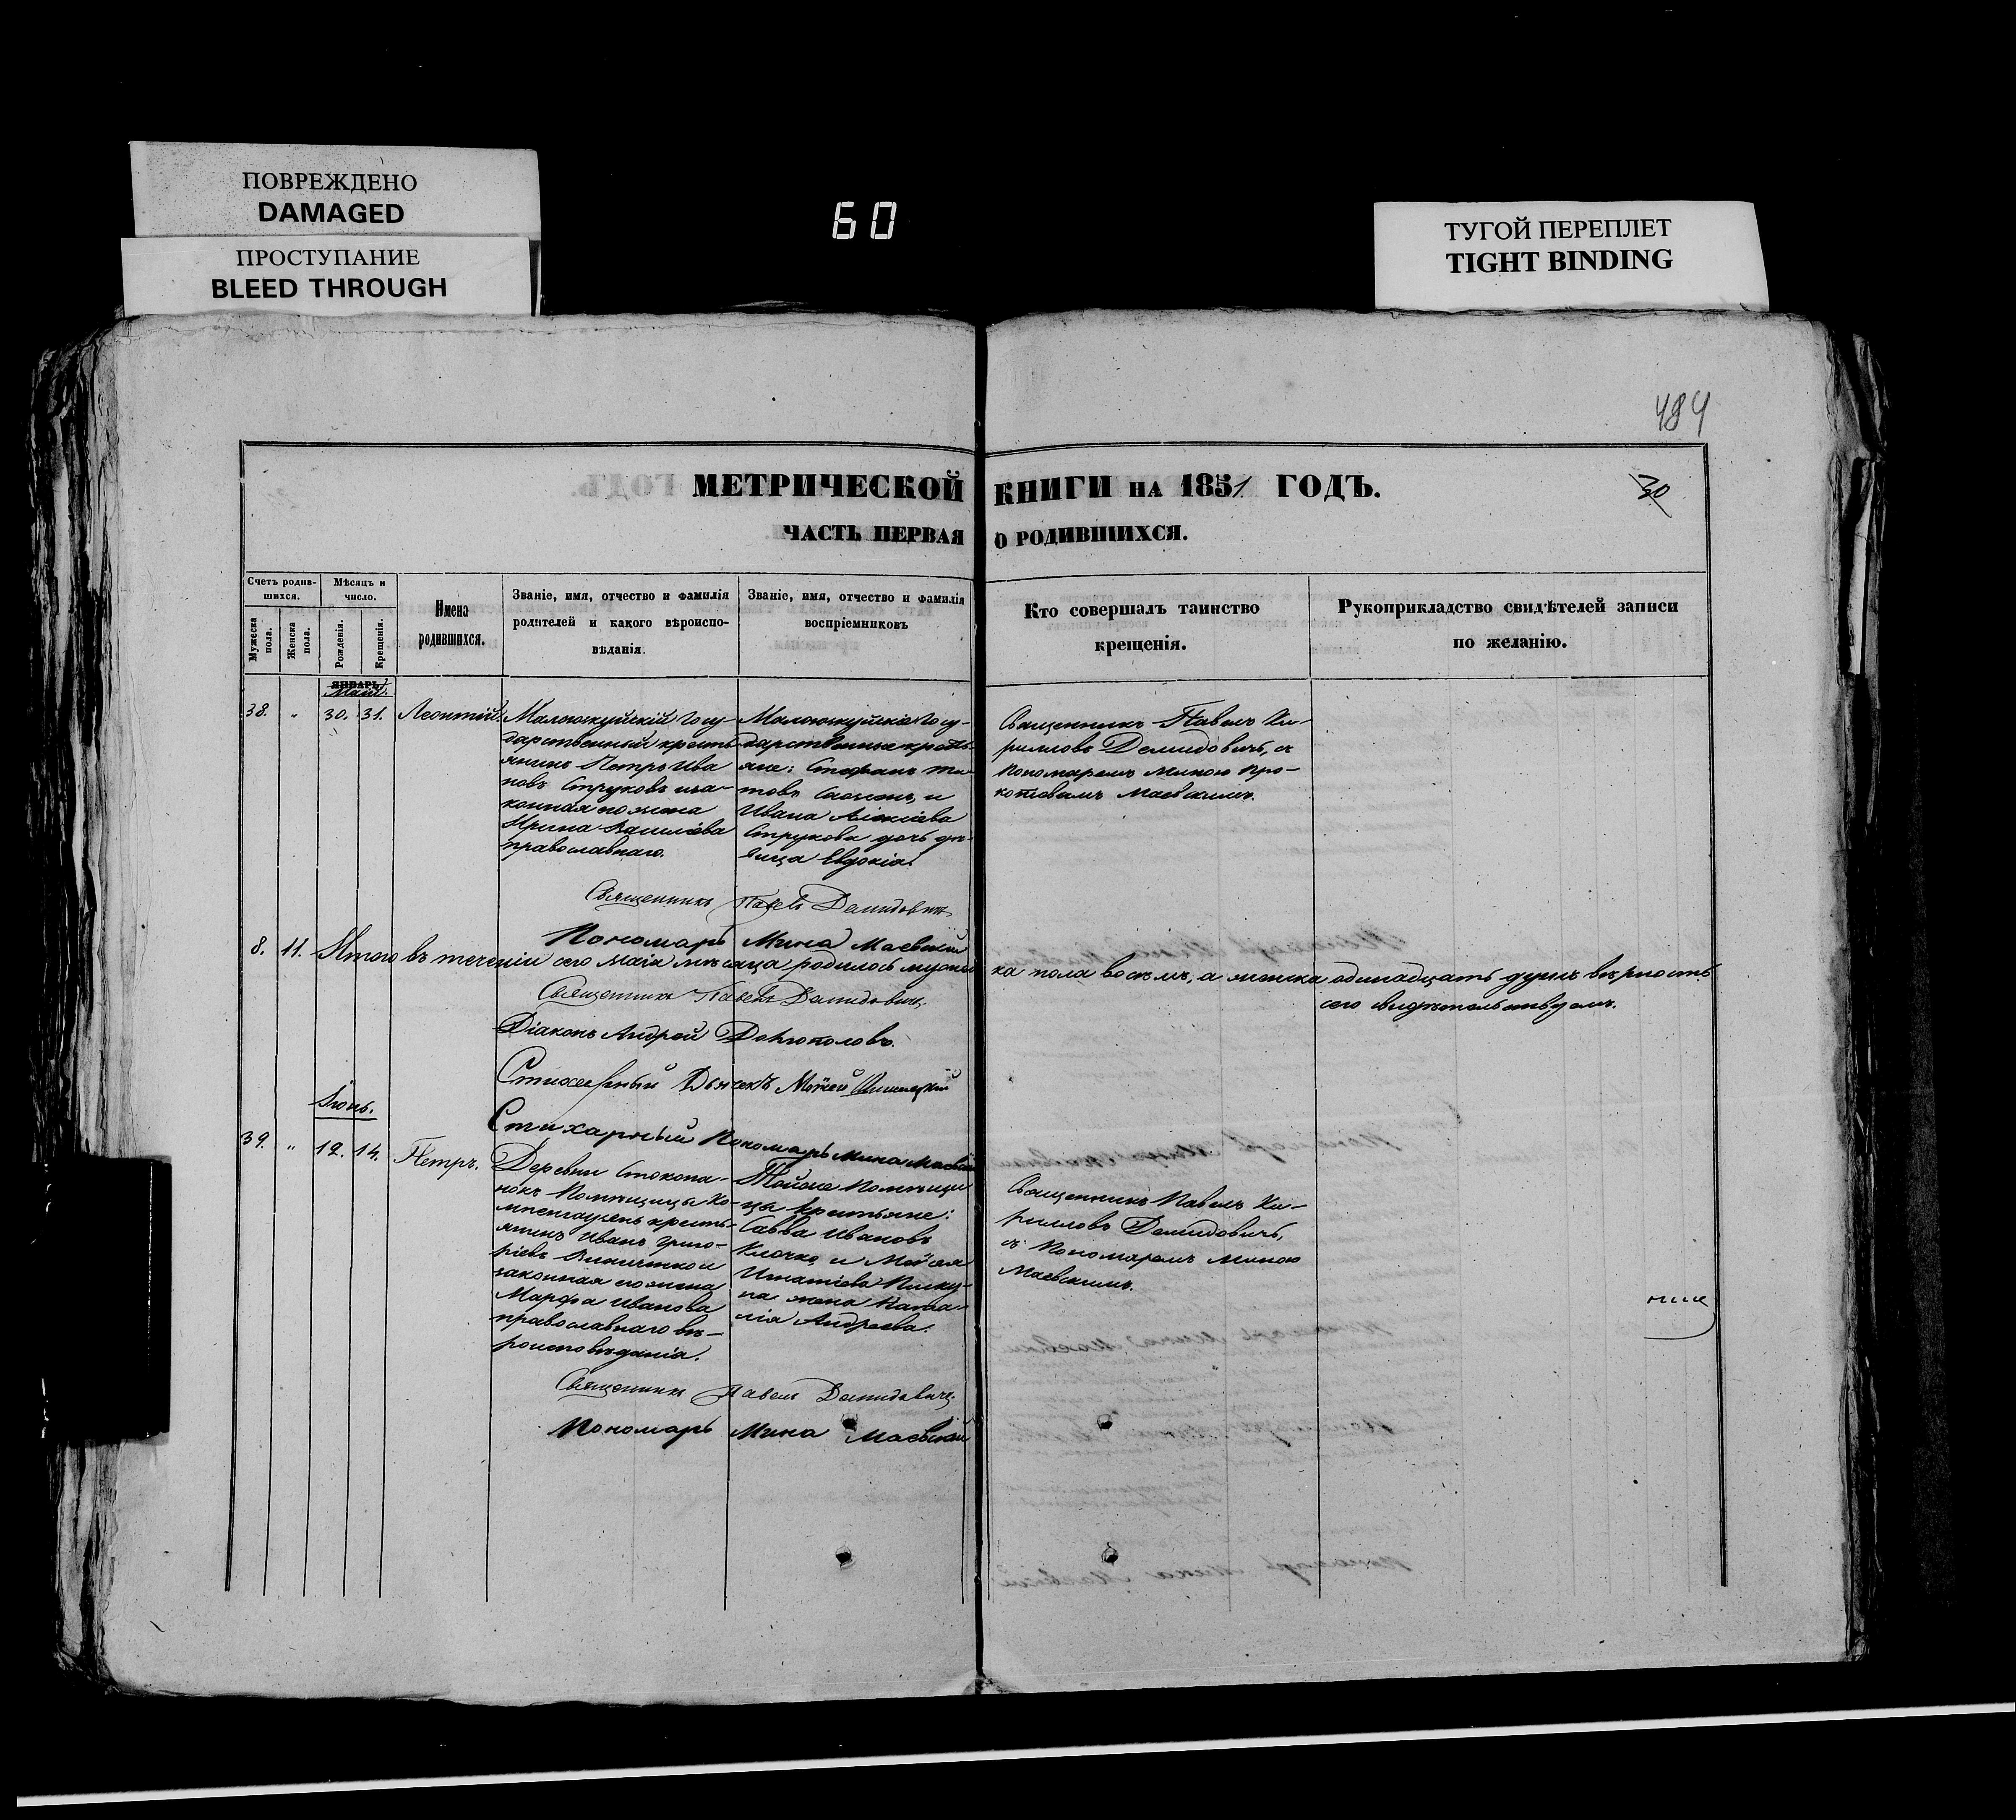 ПОВРЕЖДЕНО
DAMAGED
ПРОСТУПАНИЕ
BLEED THROUGH
60
ТУГОЙ ПЕРЕПЛЕТ
TIGHT BINDING
484
МЕТРИЧЕСКОЙ КНИГИ НА 1851 ГОДЪ.
30
ЧАСТЬ ПЕРВАЯ О РОДИВШИХСЯ.
Счетъ родив-
шихся.
Мужеска пола.
Женска пола.
Мѣсяцъ и
число.
Рожденія.
Крещенія.
Имена
родившихся.
Званіе, имя, отчество и фамилія
родителей и какого вѣроиспо-
вѣданія.
Званіе, имя, отчество и фамилія
воспріемниковъ
Кто совершалъ таинство
крещенія.
Рукоприкладство свидѣтелей записи
по желанію.
ЯНВАРЬ
Маій.
38. " 30. 31. Леонтій
Госу-
дарственный кресть-
янинъ Петръ Ива
новъ Струковъ иза-
конная его жена
Ирина Василіева
православнаго.
Госу-
дарственные кресть-
яне: Стефанъ Ти-
товъ и
Ивана Алексіева
Струкова дочь дѣ-
вица Евдокія.
Священникъ Павелъ Ки-
рилловъ Демидовичь, съ
Пономаремъ Миною Про-
копіевымъ Маевскимъ.
Священникъ Павелъ Демидовичъ
Пономарь Мина Маевскій
8. 11. Итого въ теченіи сего Маія мѣсяца родилось мужес-
ка пола восемь, а женска одинадцать душъ вѣрность
сего свидѣтельствуемъ.
Священникъ Павелъ Демидовичъ.
Діаконъ Андрей
Стихарный Дьячекъ Моисей
Стихарный Пономарь Мина Маевскій
Іюнь.
39. " 12. 14. Петръ.
Деревни
Помѣщицы Ко-
кресть-
янинъ Иванъ Григо-
ріевъ и
законная его жена
Марфа Иванова
православнаго вѣ-
роисповѣданія.
Тойже Помѣщи-
цы крестьяне:
Савва Ивановъ
Клочко, и Моисея
Игнатіева Писку-
на жена Ната-
лія Андреева.
Священникъ Павелъ Ки-
рилловъ Демидовичь,
съ Пономаремъ Миною
Маевскимъ.
Священникъ Павелъ Демидовичъ.
Пономарь Мина Маевскій